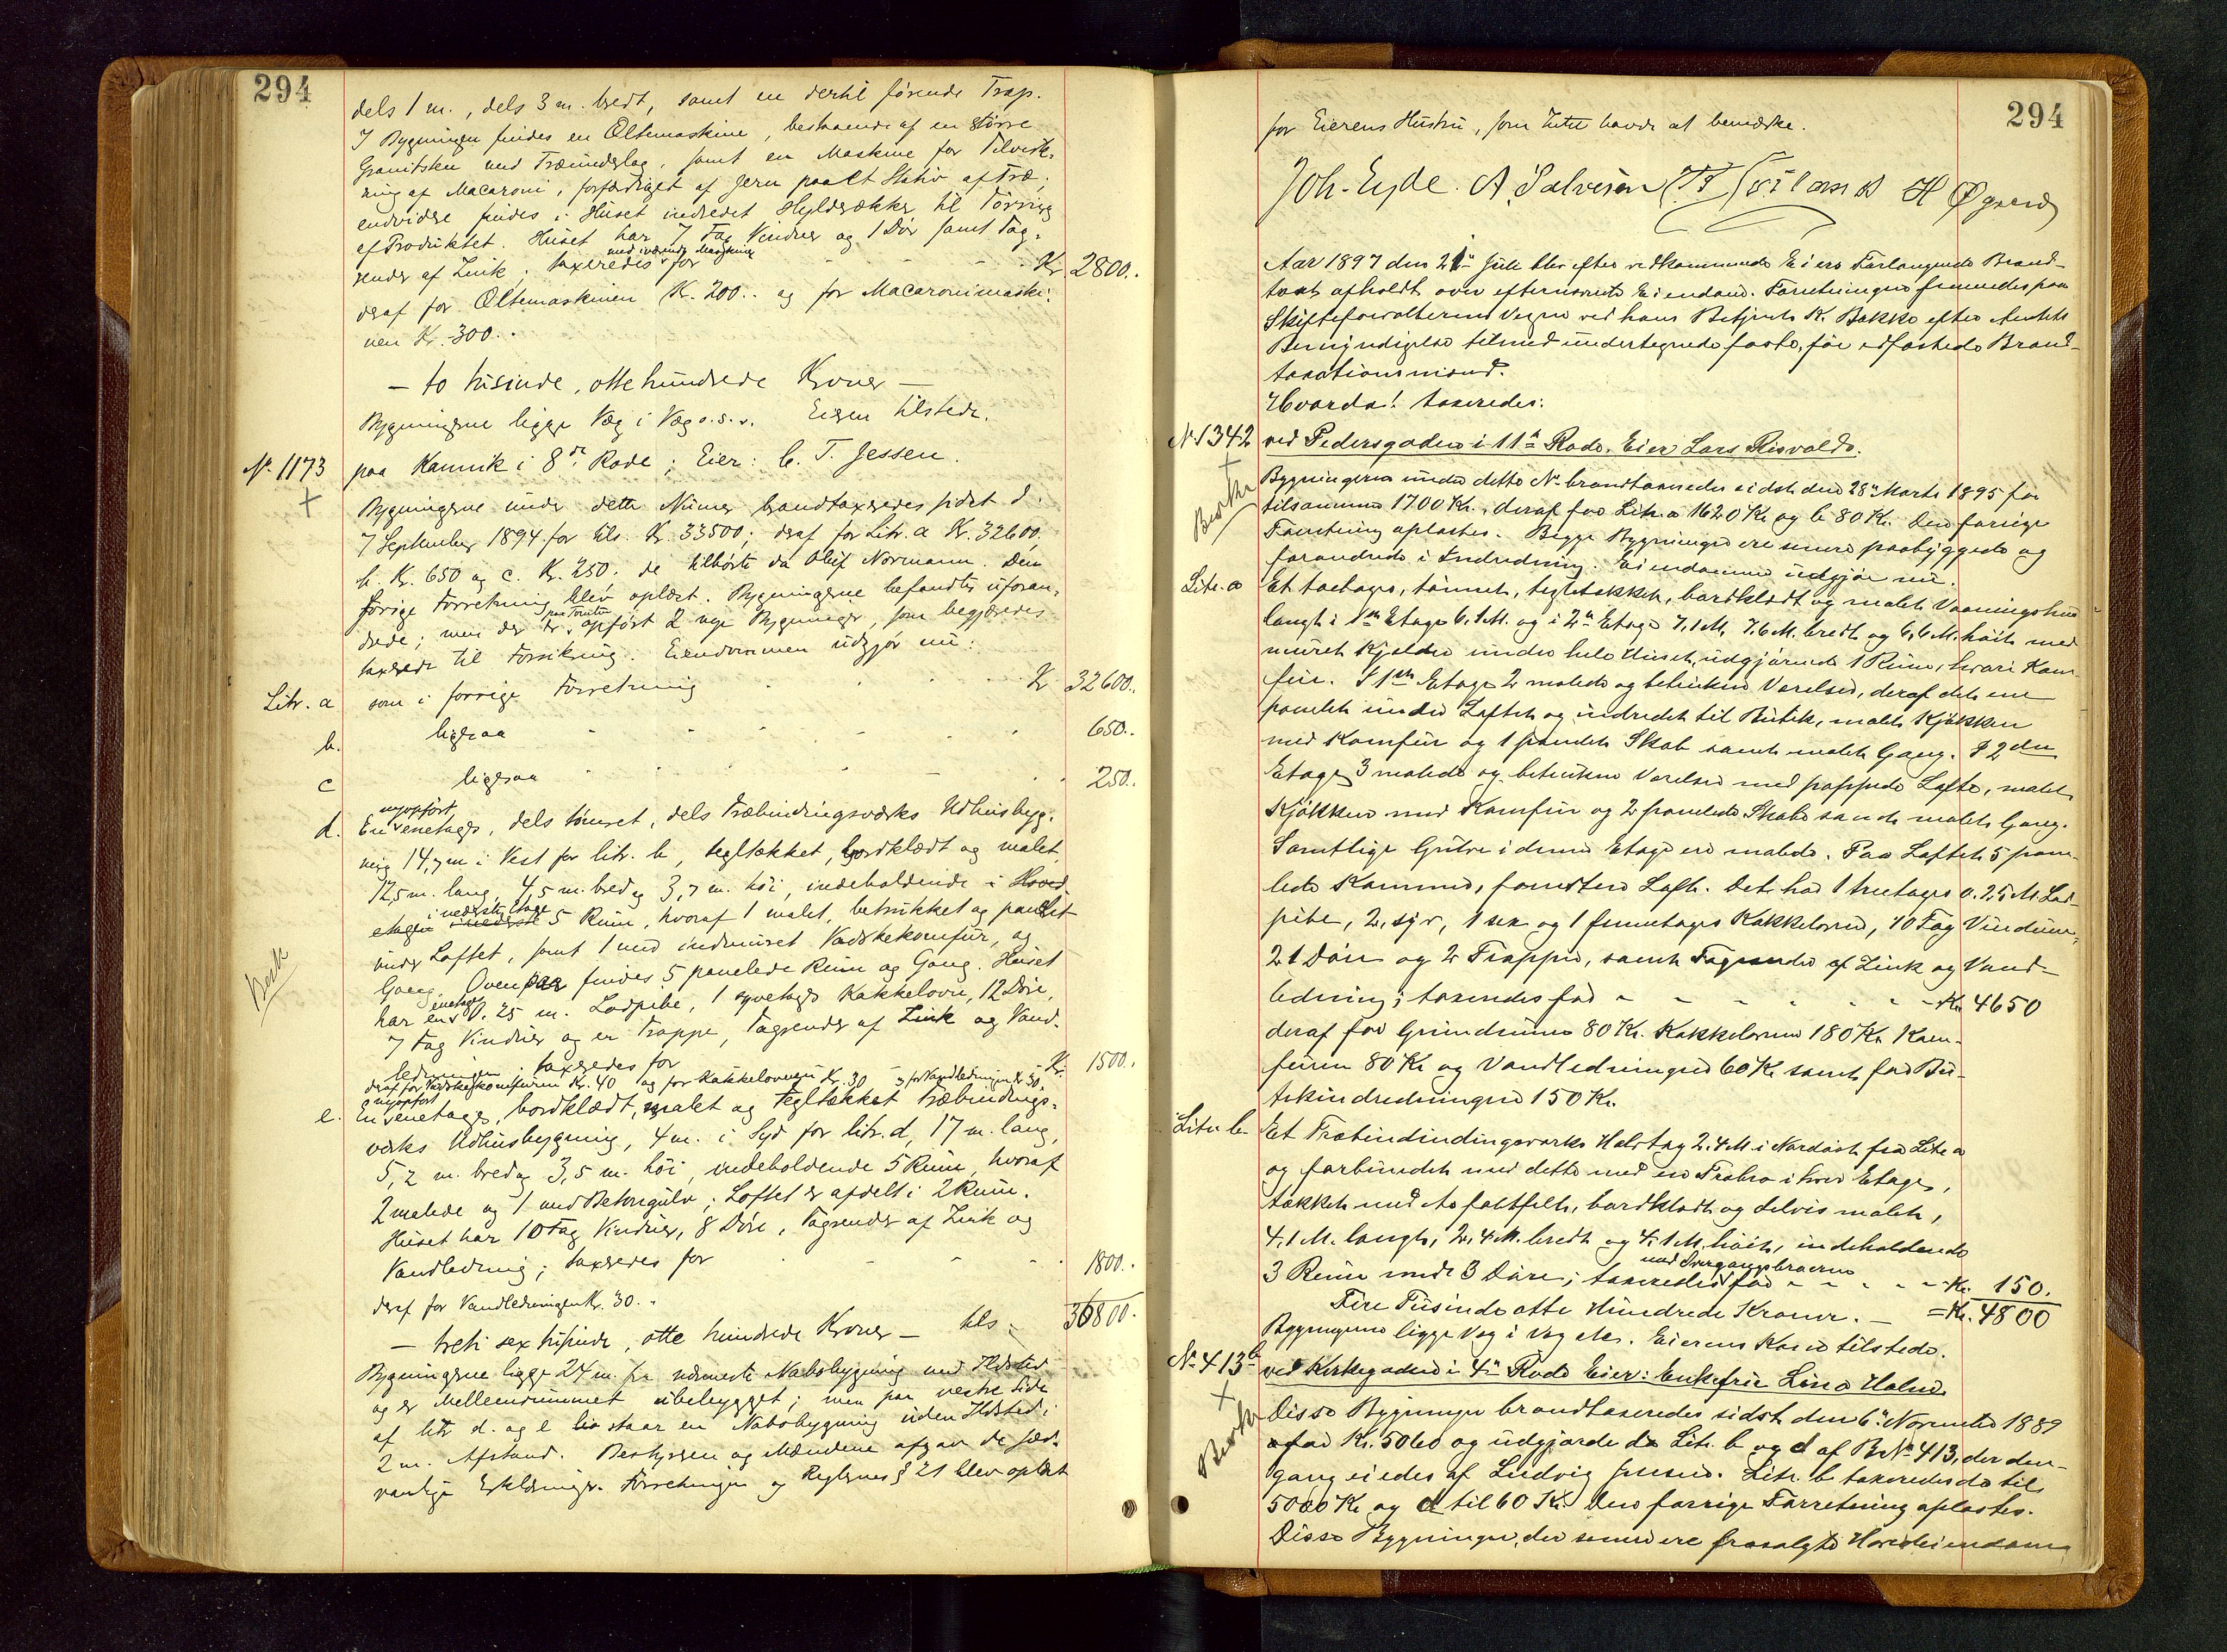 294
dels 1 m., dels 3 m. bredt, samt en dertil førende Trap.
I Bygningen findes en Æltemaskine, bestaaende af en større
Granitsten med Træunderlag, samt en Maskine for Tilvirk-
ning af Macaroni, forfærdiget af Jern paa et Stativ af Træ;
endvidere findes i Huset indredet Hylderækker til Tørring
af Produktet. Huset har 7 Fag Vinduer og 1 Dör samt Tag-
render af Zink; taxeredes med iværende Maskiner for - - - - Kr. 2800..
deraf for Æltemaskinen Kr. 200.. og for Macaronimaski-
nen Kr. 300..
— to tusinde, otte hundrede Kroner —
Bygningerne ligge Væg i Væg o.s.v. Eieren tilstede.
N. 1173 paa Kannik i 8de Rode; Eier: C. T. Jessen.
Bygningerne under dette Numer brandtaxeredes sidst d.
7 September 1894 for tils. Kr. 33500; deraf for Litr. a Kr. 32600,
b. Kr. 650 og c. Kr. 250; de tilhørte da Oluf Normann. Den
forrige Forretning blev oplæst. Bygningerne befandtes uforan-
drede; men der er paa Tomten opført 2 nye Bygninger, som begjæredes
taxerede til Forsikring. Eiendommen udgjør nu:
Litr. a som i forrige Forretning - - - - Kr. 32600..
b. ligesaa - - - - - - 650..
c ligesaa - - - - - - 250..
d. En nyopført eenetages, dels tømret, dels Træbindingsværks Udhusbyg-
ning 14,7 m i Vest for litr. b, tegltækket, bordklædt og malet,
12,5 m. lang, 4,5 m. bred og 3,7 m. høi, indeholdende i Hoved-
etagen i nederste Etage 5 Rum, hvoraf 1 malet, betrukket og panelet
under Loftet, samt 1 med indmuret Vadskekomfur, og
Gang. Ovenpaa findes 5 panelede Rum og Gang. Huset
har en enetages 0.25 m. Lodpibe, 1 syvetages Kakkelovn, 12 Döre,
7 Fag Vinduer og en Trappe, Tagrender af Zink og Vand-
ledningen; taxeredes for - Kr. 1500.
deraf for Vadskekomfuren Kr. 40 og for Kakkelovnen Kr. 30 og for Vandledningen Kr 30.
e. En nyopført eenetages, bordklædt, malet og tegltækket Træbindings-
værks Udhusbygning, 4 m. i Syd for litr. d, 17 m. lang,
5,2 m. bred og 3,5 m. høi, indeholdende 5 Rum, hvoraf
2 malede og 1 med Betongulv; Loftet er afdelt i 2 Rum.
Huset har 10 Fag Vinduer, 8 Döre, Tagrender af Zink og
Vandledning; taxeredes for - - - - 1800..
deraf for Vandledningen Kr. 30..
— treti sex tusinde, otte hundrede Kroner — tils. 36800..
Besk
Bygningerne ligge 24 m. fra nærmeste Nabobygning med Ildsted
og er Mellemrummet ubebygget; men paa vestre Side
af litr d. og e staar en Nabobygning uden Ildsted i
2 m. Afstand. Bestyreren og Mændene afgav de sæd-
vanlige Erklæringer. Forretningen og Reglernes § 21 blev oplæst
294
for Eierens Hustru, som Intet havde at bemærke.
Joh. Eyde. A. Salvesen H Øgaard
Aar 1897 den 21de Juli blev efter vedkommende Eieres Forlangende Brand-
taxt afholdt over efternævnte Eiendomme. Forretningen fremmedes paa
Skifteforvalterens Vegne ved hans Betjent K. Bakke efter Amtets
Bemyndigelse tilmed undertegnede faste, før edfæstede Brand-
taxationsmænd.
Hvorda! taxeredes:
No 1342 ved Pedersgaden i 11te Rode. Eier Lars Risvolds.
Beskr
Bygningerne under dette No brandtaxeredes sidst den 28de Marts 1895 for
tilsammen 1700 Kr., deraf for Litr. a 1620 Kr og b 80 Kr. Den forrige
Forretning oplæstes. Begge Bygninger ere senere paabyggede og
forandrede i Indredning. Eiendommen udgjør nu:
Litr. a Et toetages, tømret, tegltækket, bordklædt og malet Vaaningshus
langt i 1ste Etage 6.1 M. og i 2den Etage 7.1 M, 7.6 M. bredt og 6.6 M. høit med
muret Kjelder under hele Huset, udgjørende 1 Rum, hvori Kom-
fur. I 1ste Etage 2 malede og betrukne Værelser, deraf det ene
panelet under Loftet og indredet til Butik, malet Kjøkken
med Komfur og 1 panelet Skab samt malet Gang. I 2den
Etage 3 malede og betrukne Værelser med pappede Lofte, malet
Kjøkken med Komfur og 2 panelede Skabe samt malet Gang.
Samtlige Gulve i denne Etage ere malede. Paa Loftet 5 pane-
lede Kammere, forresten Loft. Det har 1 treetages 0.25 M. Lod-
pibe, 2 syv, 1 sex og 1 femetages Kakkelovne, 10 Fag Vinduer,
21 Döre og 2 Trapper, samt Tagrender af Zink og Vand-
ledning; taxeredes for - - - - - - Kr. 4650
deraf for Grundmuren 80 Kr. Kakkelovnene 180 Kr. Kom-
furene 80 Kr og Vandledningen 60 Kr samt for Bu-
tikindredningen 150 Kr.
Litr b Et Træbindindingsværks Halvtag 2.4 M. i Nordøst fra Litr a
og forbundet med dette med en Træbro i hver Etage,
tækket med Asfaltfilt, bordklædt og delvis malet,
4.1 M. langt, 2.4 M. bredt og 4.1 M. høit, indeholdende
3 Rum med 3 Döre; taxeredes med Overgangsbroerne for - - - - Kr. 150.
Fire Tusinde otte Hundrede Kroner. — = Kr. 4800
Bygningerne ligge Væg i Væg etc. Eierens Kone tilstede.
No 413b ved Kirkegaden i 4de Rode Eier: Enkefru Lina Holme
Beskr
Disse Bygninger brandtaxeredes sidst den 6te November 1889
for Kr. 5060 og udgjorde da Litr. b og d af B No 413, der den-
gang eiedes af Ludvig Jensen. Litr. b taxeredes da til
5000 Kr og d til 60 Kr. Den forrige Forretning oplæstes.
Disse Bygninger, der senere ere frasolgte Hovedeiendom-